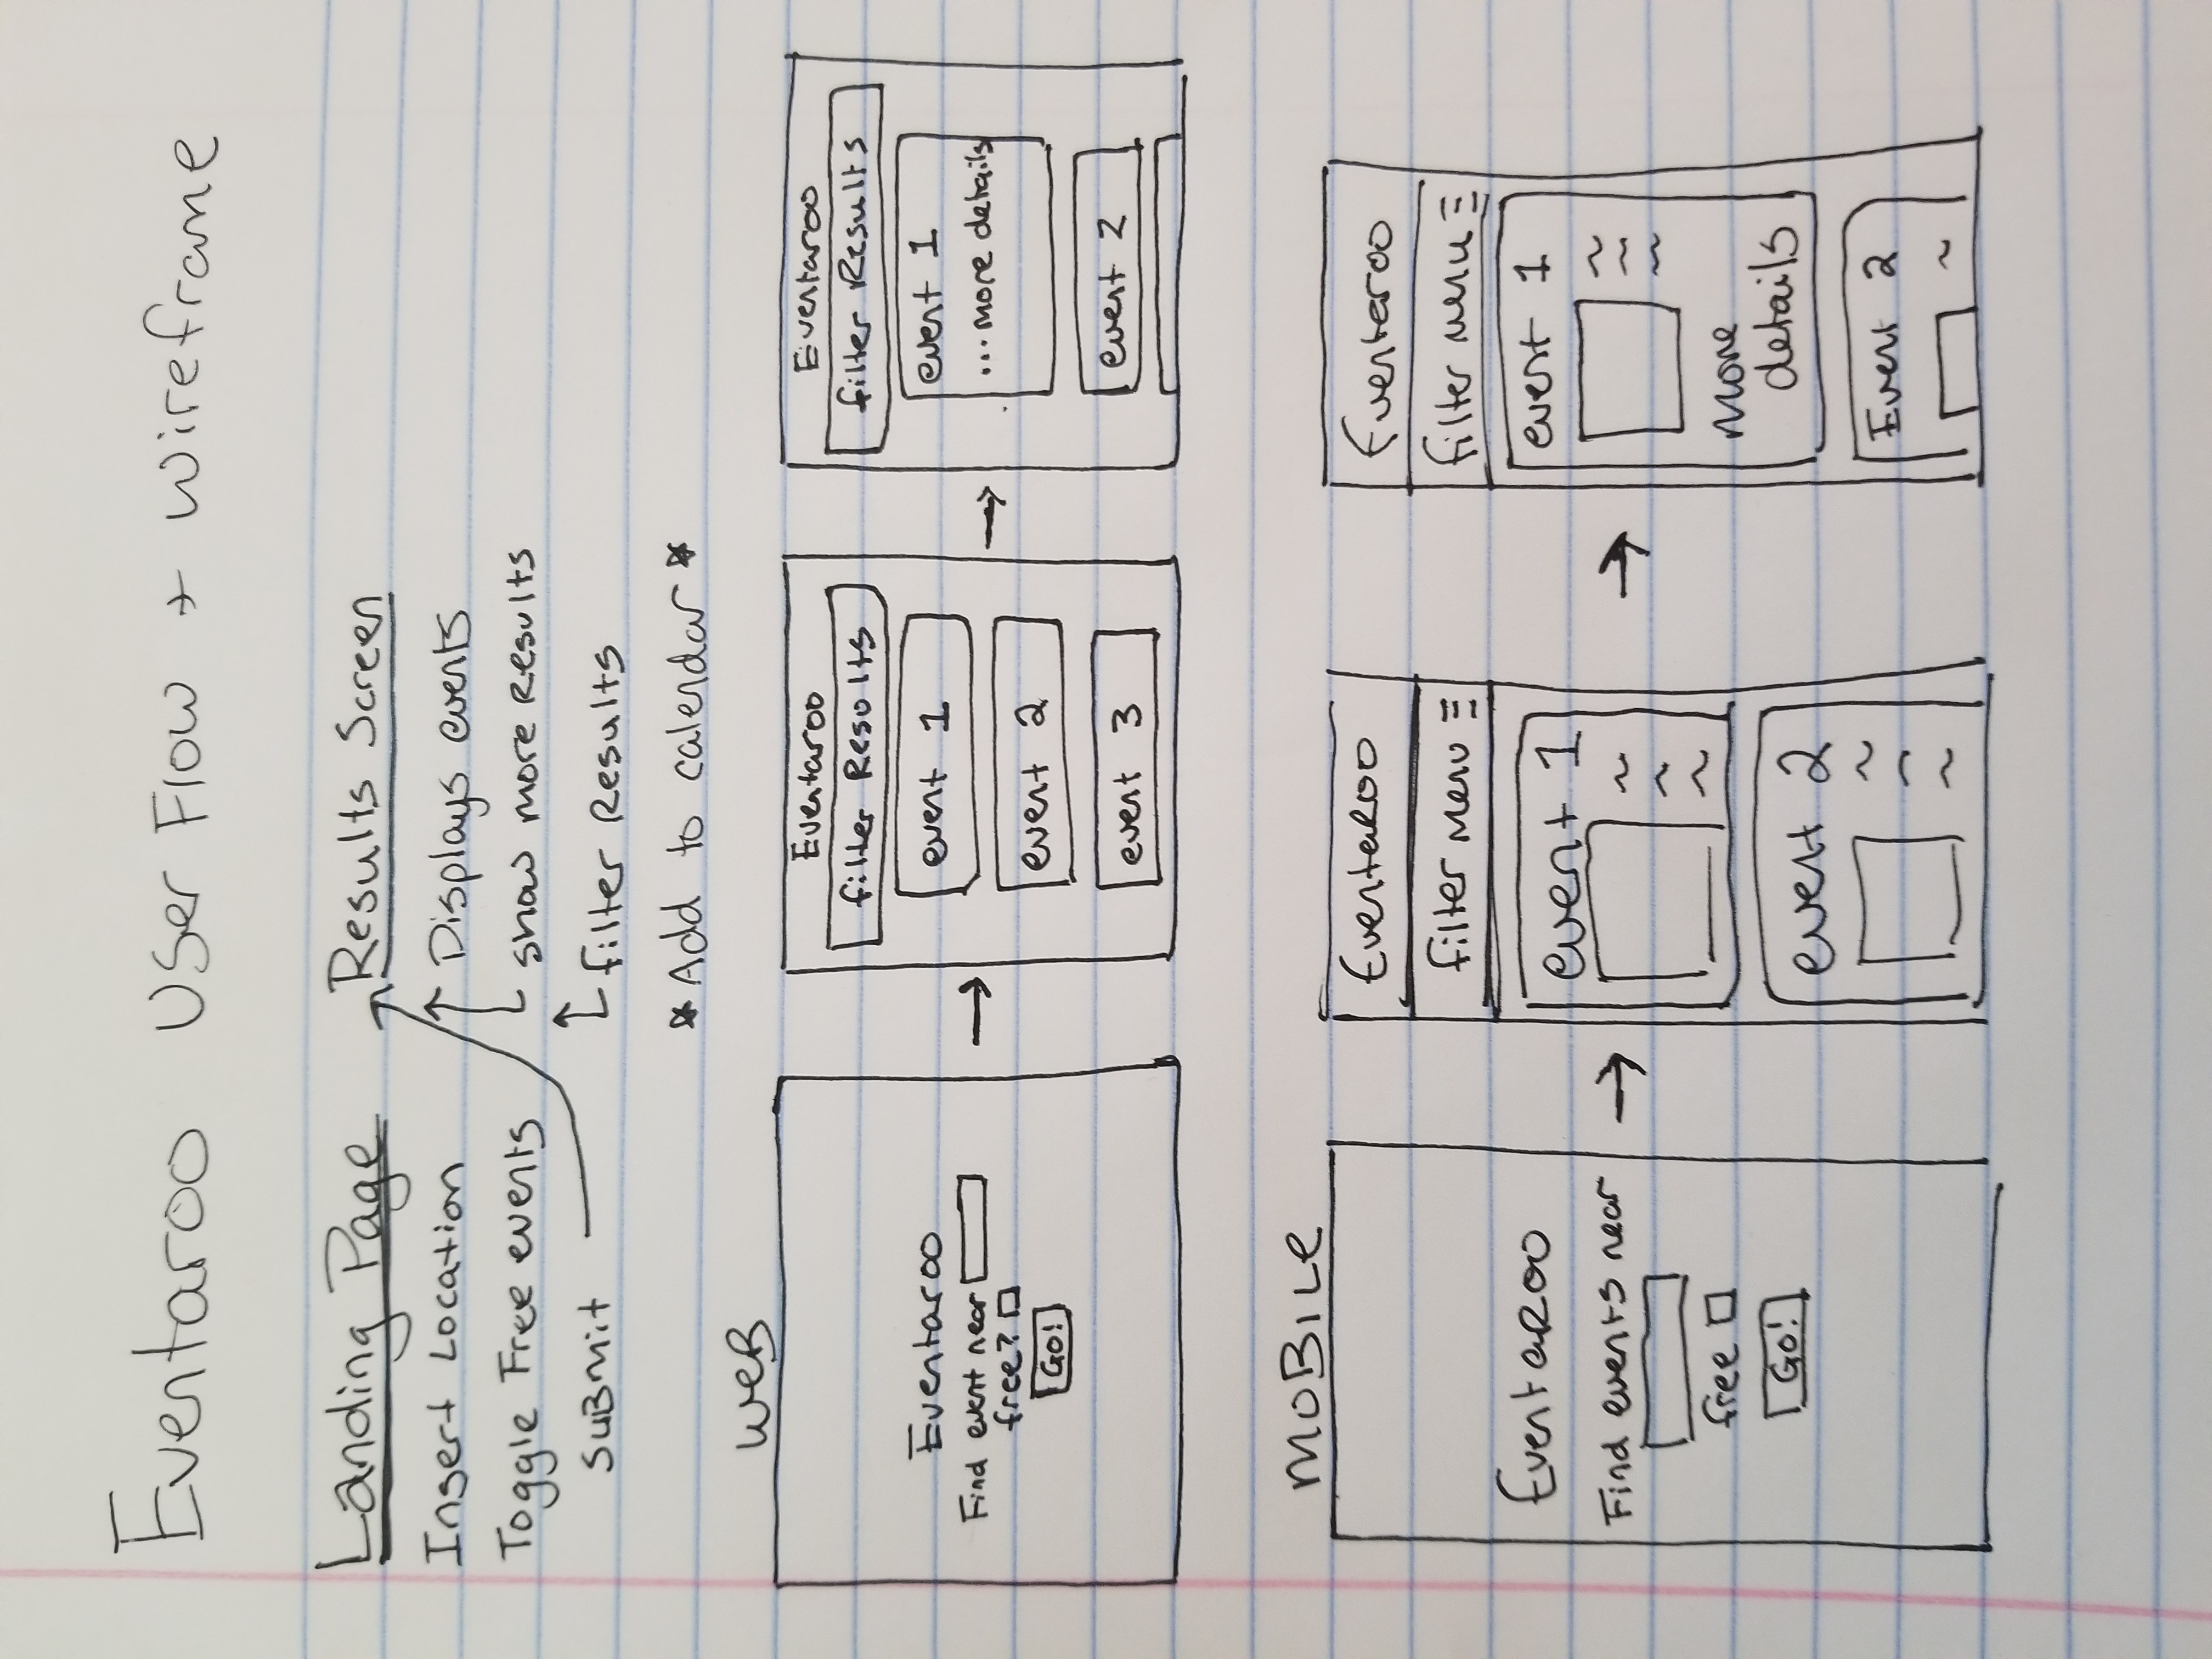 Eventaroo User Flow + Wireframe
Landing Page
Insert Location
Toggle Free events
SuBmit
Results Screen
Displays events
show more Results
filter Results
* Add to calendar *
WeB
Eventaroo
Find event near
free?
Go!
Eventaroo
filter Results
event 1
event 2
event 3
Eventaroo
filter Results
event 1
...more details
event 2
MOBILe
EventaRoo
Find events near
free
Go!
EventaRoo
filter menu
event 1
event 2
Eventaroo
filter menu
event 1
More
details
Event 2